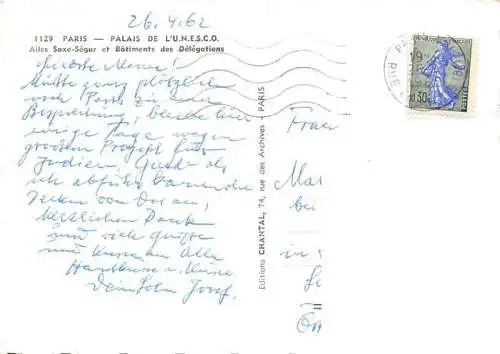 26.4.62
1129 PARIS — PALAIS DE L'U.N.E.S.C.O.
Ailes Saxe-Ségur et Bâtiments des Délégations
Liebste Mama!
Musste ganz plötzlich
nach Paris zu einer
Besprechung, bleibe hier
einige Tage wegen
grossem Projekt für
Indien. Gerade als
ich abfuhr kamen die
von Dor an,
herzlichen Dank
und viele Grüsse
und Küsse an Alle
Handküsse u. Küsse
Dein Sohn Josef.
Editions CHANTAL, 74, rue des Archives - PARIS
Frau
Mar
bei
in
PARIS
19
0,30
POSTES